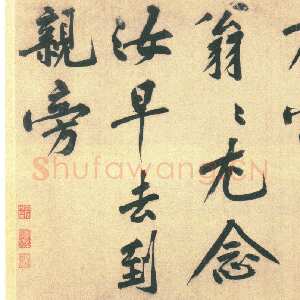 翁〻尤念
汝早去到
親旁
Shufawang.CN